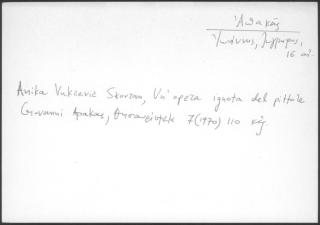 Ἀπακάς
Ἰωάννης, ζωγράφος,
16 αἰ.
Anika Vukcevic Skovran, Un' opera ignota del pittore
Giovanni Apakas, Θησαυρίσματα 7 (1970) 110 κἑ.